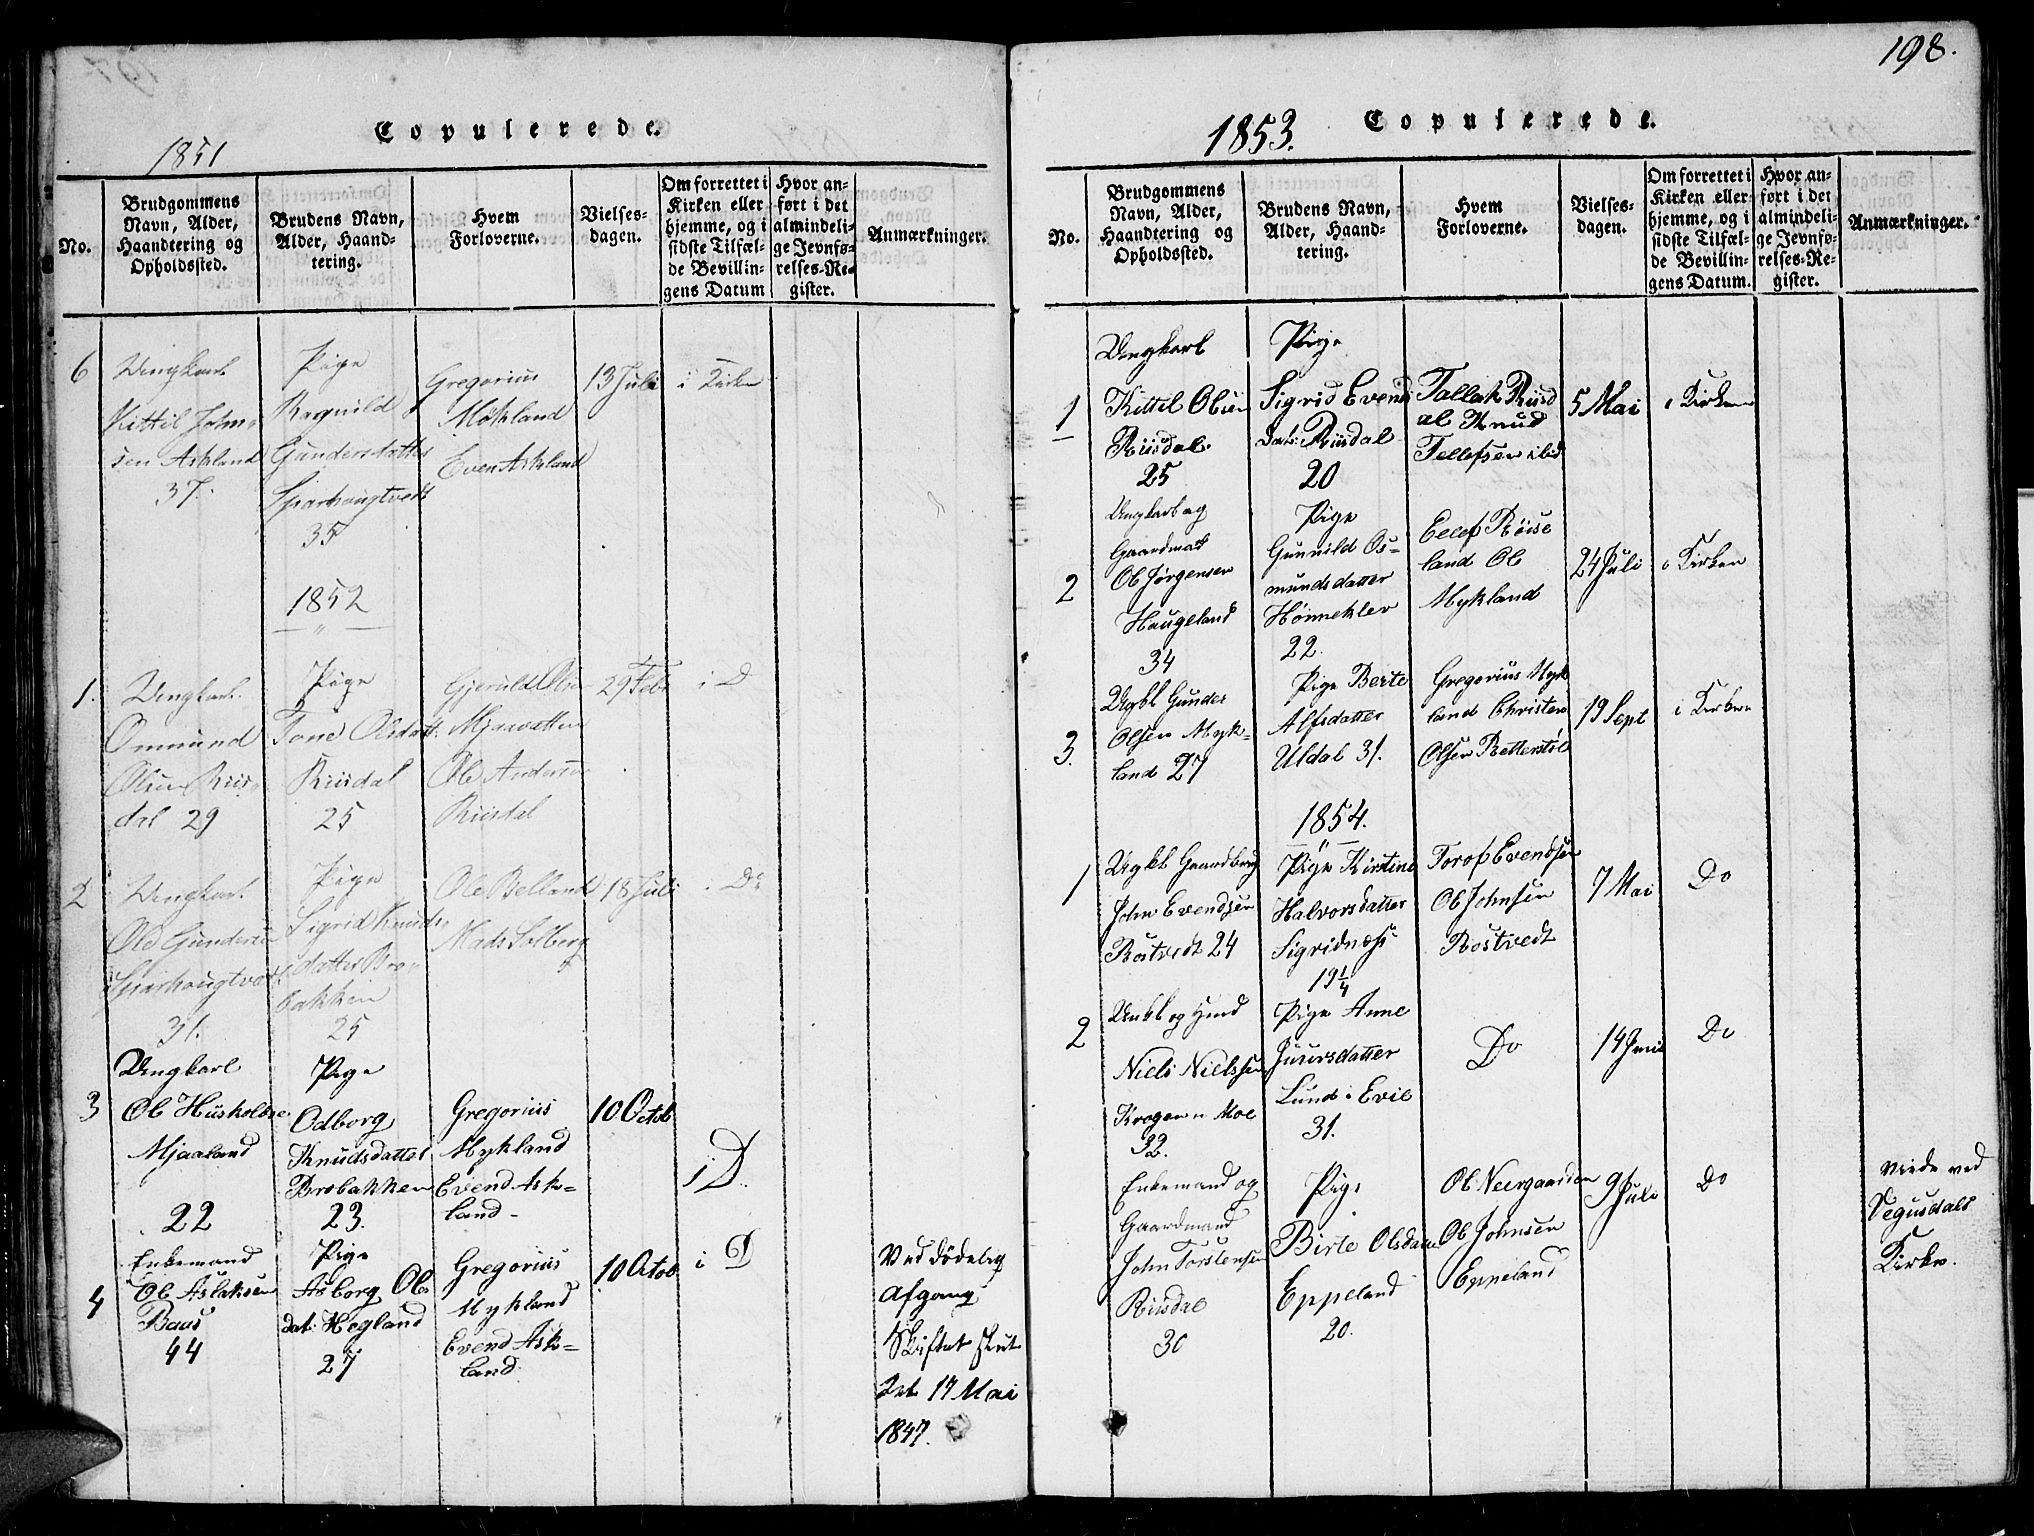 198.
Copulerede.
1851
No.
Brudgommens Navn, Alder, Haandtering og Opholdssted.
Brudens Navn, Alder, Haandtering.
Hvem Forloverne.
Vielsesdagen.
Om forrettet i Kirken eller hjemme, og i sidste Tilfælde Bevillingens Datum
Hvor anført i det almindelige Jevnførelses-Register.
Anmærkninger.
6
Ungkarl
Kittil Johnsen Askland
37.
Pige
Ragnild
Gundersdatter
Sparhougtvedt
35
Gregorius
Mökland
Even Askland
13 Juli
i Kirken
1852
1.
Ungkarl.
Osmund
Olsen Riisdal 29
Pige
Tone Olsdatt.
Riisdal
25
Gjeruld Olsen
Mjaavatten
Ole Andersen
Riisdal
29 Febr
i D
2
Ungkarl.
Ole Gundersen
Sparhougtvedt
31.
Pige
Sigrid Knudsdatter Brobakken
25
Ole Belland
Mads Solberg
18 Juli
Do
3
Ungkarl
Ole
Mjaaland
22
Pige
Odborg
Knudsdatter
Brobakken
23.
Gregorius
Mykland
Evend Askland
10 Octob
i D.
4
Enkemand
Ole Aslaksen
Baas
44
Pige
Asborg Olsdat. Hegland
27
Gregorius
Mykland
Evend Askland.
10 Octob
i D
Ved dödelig
Afgang
Skiftet slut
17 Mai
1847.
Copulerede.
1853.
No.
Brudgommens Navn, Alder, Haandtering og Opholdssted.
Brudens Navn, Alder, Haandtering.
Hvem Forloverne.
Vielsesdagen.
Om forrettet i Kirken eller hjemme, og i sidste Tilfælde Bevillingens Datum.
Hvor anført i det almindelige Jevnførelses-Register.
Anmærkninger.
1
Ungkarl
Kittel Olsen
Riisdal
25
Pige
Sigrid Evends
Dat: Riisdal
20
Tallak Riisdal Knud
Tellefsen ibid
5 Mai
i Kirken
2
Ungkarl og
Gaardmand
Ole Jørgensen
Haugeland
34
Pige
Gunnild Osmundsdatter
Hönneklev
22.
Eelef Röiseland Ole
Mykland
24 Juli
i Kirken
3.
Ugkl Gunder
Olsen Mykland 27
Pige Berte
Alfsdatter
Uldal 31.
Gregorius Mykland Christen
Olsen Retterstöl
19 Sept
i Kirken
1854.
1
Ugkl Gaardbrug
John Evendsen
Rostvedt 24
Pige Kirstine
Halvorsdatter
Sigridnæss
19 1/4
Torof Evendsen
Ole Johnsen
Rostvedt
7 Mai
Do
2
Niels Nielssen
Krogen Moe
32.
Pige Anne
Lund i Evie
31.
Do
14 Juni
Do
Enkemand og
Gaardmand
John Torstensen
Riisdal
30
Pige
Birte Olsdatter
Eppeland
20.
Ole Neergaarden
Ole Johnsen
Eppeland
9 Juli
Do
Viede ved
Vegusdals
Kirke.